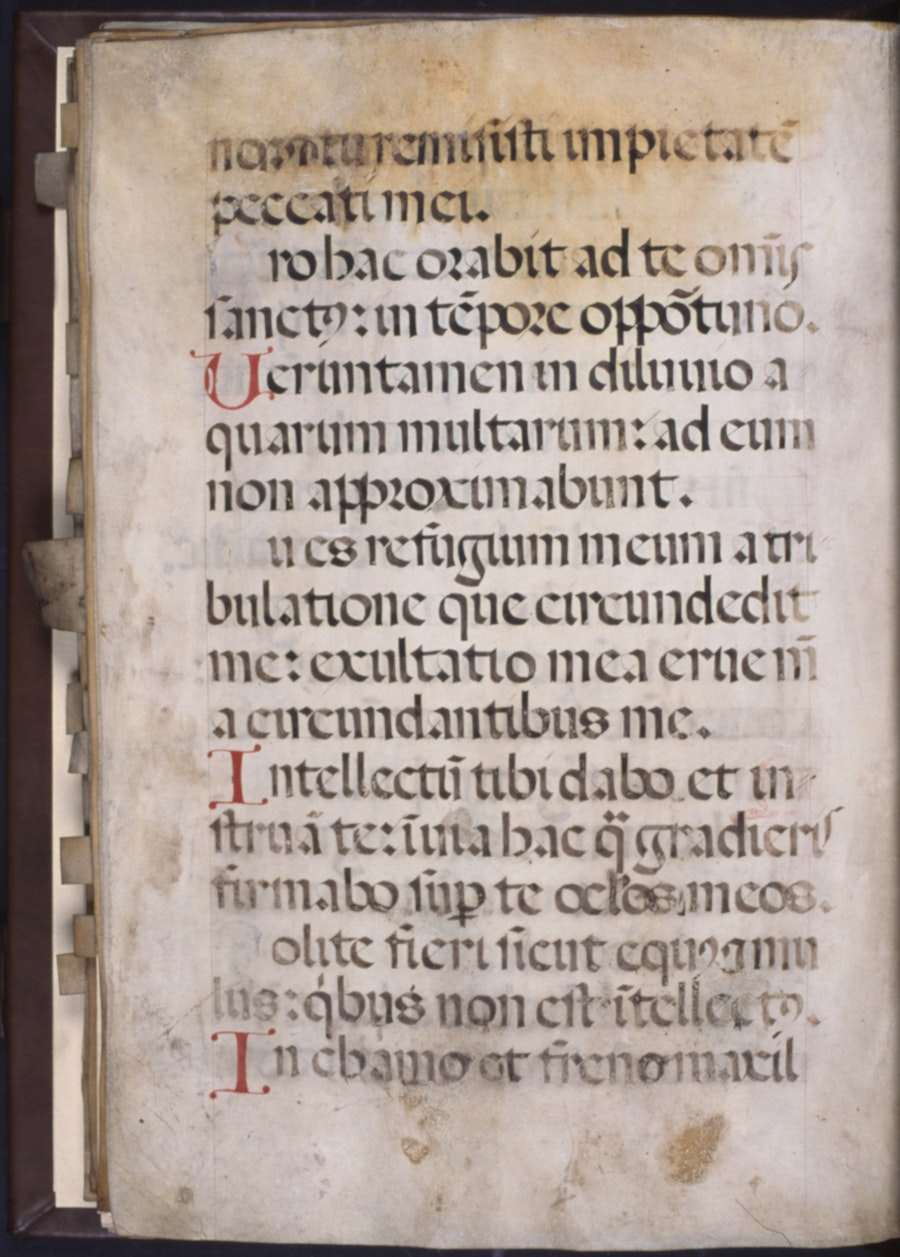 remisisti impietatē
peccati mei.
ro hac orabit ad te omīs
sanctꝰ: in tēpore oppōtuno.
Ueruntamen in diluuio a
quarum multarum: ad eum
non approximabunt.
u es refugium meum a tri
bulatione que circundedit
me: exultatio mea erue m̄
a circundantibus me.
Intellectū tibi dabo et in
struā te: ī uia hac q̄ gradieris
firmabo suꝑ te oclos meos.
olite fieri sicut equꝰ ⁊ mu
lus: qͥbus non est ītellectꝰ.
In chamo et freno maxil